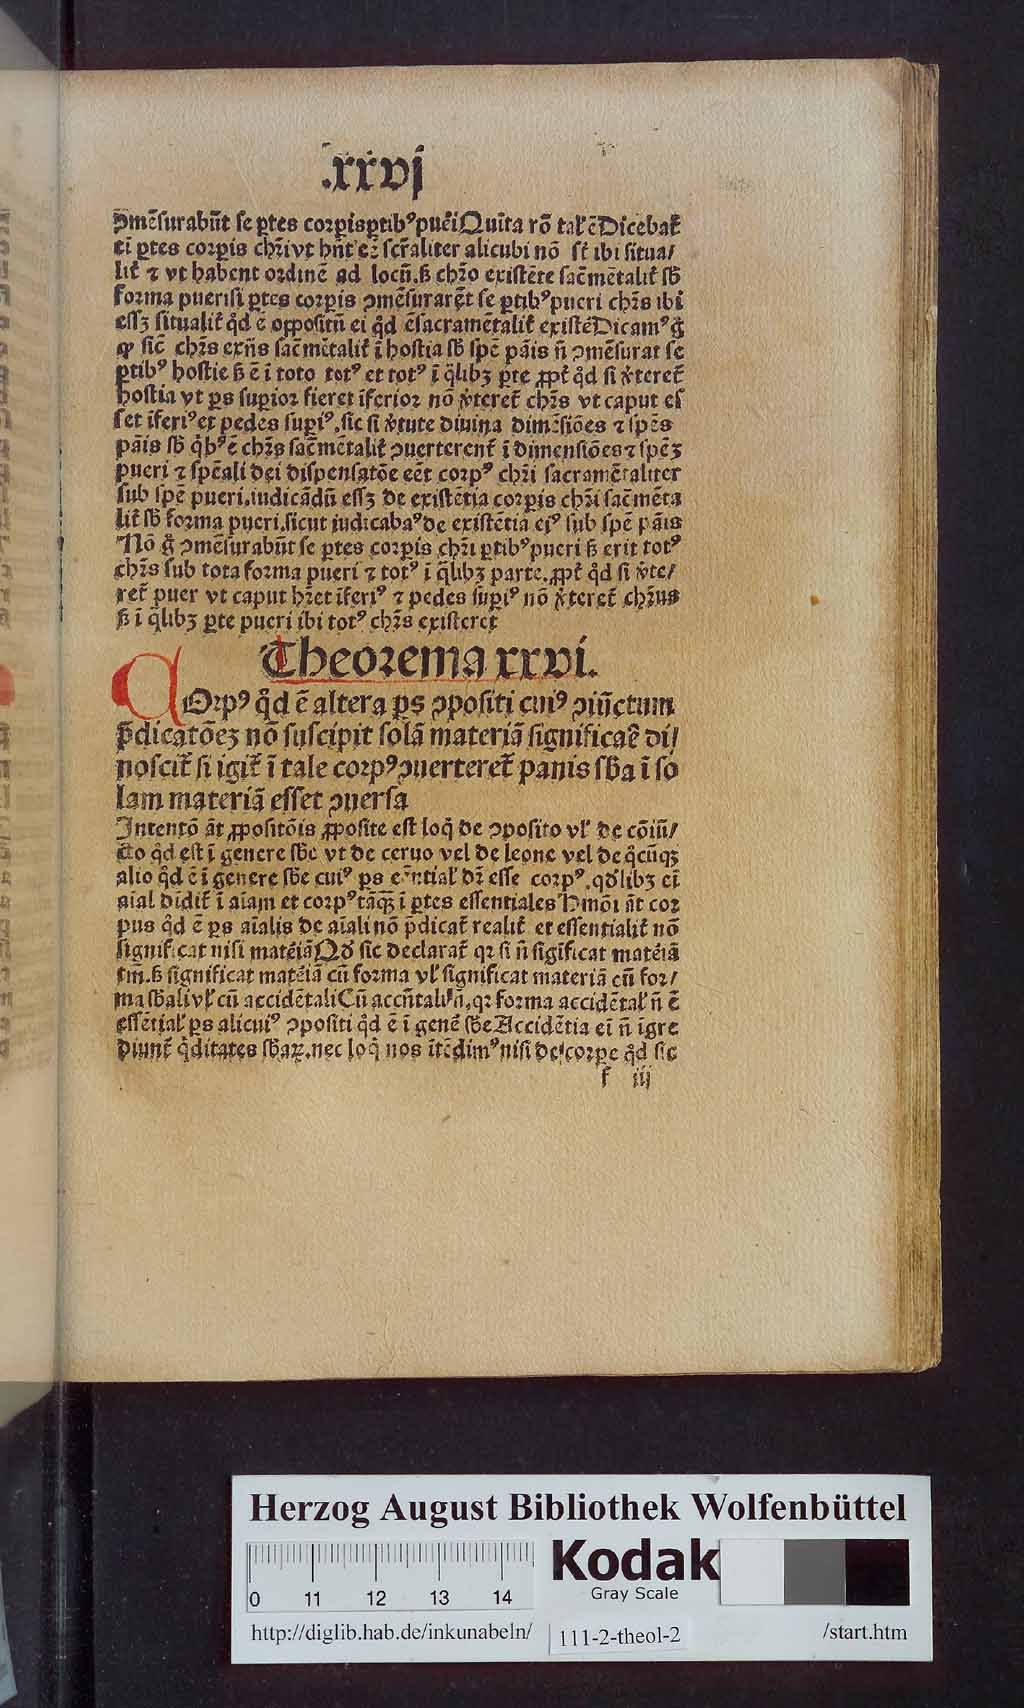 .xxvj
ꝯmēſurabūt ſe ꝑtes corꝑis ꝑtibꝰ pueri Quīta rō tal' ē Dicebat̄
eī ꝑtes corꝑis chr̄i vt hn̄t eē ſcr̄aliter alicubi nō ſt̄ ibi ſitua/
lit̄ ⁊ vt habent ordinē ad locū. ß chr̄o exiſtēte ſac̄mētalit̄ ſb̄
forma pueriſi ꝑtes corꝑis ꝯmēſurarēt ſe ꝑtibꝰ pueri chr̄s ibi
eſſꝫ ſitualit̄ qd̄ ē oppoſitū ei qd̄ ē ſacramētalit̄ exiſtē Dicamꝰ g̊
ꝙ ſic̄ chr̄s exn̄s ſac̄mētalit̄ ī hoſtia ſb̄ ſpē pāis n̄ ꝯmēſurat ſe
ꝑtibꝰ hoſtie ß ē ī toto totꝰ et totꝰ ī q̄libꝫ ꝑte ꝓpt̄ qd̄ ſi v̄teret̄
hoſtia vt ꝑs ſuꝑior fieret īferior nō v̄teret̄ chr̄s vt caput eſ
ſet īferiꝰ et pedes ſuꝑiꝰ. ſic ſi v̄tute diuina dimēſiōes ⁊ ſpēs
pāis ſb̄ q̄bꝰ ē chr̄s ſac̄mētalit̄ ꝯuerterent̄ ī dimenſiōes ⁊ ſpēꝫ
pueri ⁊ ſpēali dei diſpenſatōe eēt corpꝰ chr̄i ſacramētaliter
ſub ſpē pueri. iudicādū eſſꝫ de exiſtētia corꝑis chr̄i ſac̄mēta
lit̄ ſb̄ forma pueri. ſicut iudicabaꝰ de exiſtētia eiꝰ ſub ſpē pāis
Nō g̊ ꝯmēſurabūt ſe ꝑtes corꝑis chr̄i ꝑtibꝰ pueri ß erit totꝰ
chr̄s ſub tota forma pueri ⁊ totꝰ ī q̄libꝫ parte. ꝓpt̄ qd̄ ſi v̄te/
ret̄ puer vt caput hr̄et īferiꝰ ⁊ pedes ſuꝑiꝰ nō v̄teret̄ chr̄us
ß ī q̄libꝫ ꝑte pueri ibi totꝰ chr̄s exiſteret
Theorema xxvi.
COrpꝰ qd̄ ē altera ꝑs ꝯpoſiti cuiꝰ ꝯiūctum
p̄dicatōeꝫ nō ſuſcipit ſolā materiā ſignificar̄e di/
noſcit̄ ſi igit̄ ī tale corpꝰ ꝯuerteret̄ panis ſb̄a ī ſo
lam materiā eſſet ꝯuerſa
Intentō āt ꝓpoſitōis ꝓpoſite eſt loq̄ de ꝯpoſito vl' de cōiū/
cto qd̄ eſt ī genere ſb̄e vt de ceruo vel de leone vel de q̄cūqꝫ
alio qd̄ ē ī genere ſb̄e cuiꝰ ꝑs eēntial' dr̄ eſſe corpꝰ. qd̄libꝫ eī
aīal diīdit̄ ī aīam et corpꝰ tāqꝫ̄ ī ꝑtes eſſentiales Hmōi āt cor
pus qd̄ ē ꝑs aīalis de aīali nō p̄dicat̄ realit̄ et eſſentialit̄ nō
ſignificat niſi matēiā Qd̄ ſic declarat̄ qꝛ ſi n̄ ſigīficat matēiā
tm̄. ß ſignificat matēiā cū forma vl' ſignificat materiā cū for/
ma ſb̄ali vl' cū accidētali Cū accn̄tali n̄. qꝛ forma accidētal' n̄ ē
eſſētial' ꝑs alicuiꝰ ꝯpoſiti qd̄ ē ī genē ſb̄e Accidētia eī n̄ īgre
diunt̄ q̄ditates ſb̄aꝝ. nec loq̄ nos ītēdimꝰ niſi de corꝑe qd̄ ſic
f iij
Herzog August Bibliothek Wolfenbüttel
0 11 12 13 14
Kodak
Gray Scale
http://diglib.hab.de/inkunabeln/
111-2-theol-2
/start.htm